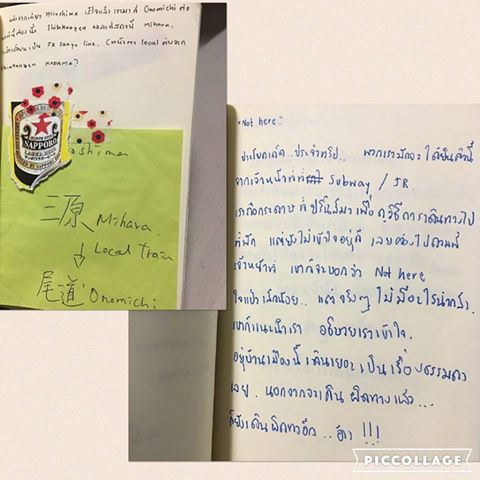 Hiroshima เสร็จแล้ว เรามาที่ Onomichi ต่อ
ต้องนั่ง Shinkansen Mihara.
เป็น JR Sanyo line. local
Shinkansen Kodama
SAPPORO
三原 Mihara
Local Train
尾道 Onomichi
Not here.
ประโยคเด็ด..ประจำทริป.. พวกเรามักจะได้ยินคำนี้
จากเจ้าหน้าที่ Subway / JR.
เราถือกระดาษที่ปริ้นมาเพื่อดูวิธีการเดินทางไป
ที่พัก แต่ยังไม่เข้าใจอยู่ดี เลยต้องไปถามพี่
เจ้าหน้าที่ เขาก็จะบอกว่า Not here
ใจแป้วเล็กน้อย.. แต่จริงๆ ไม่มีอะไรน่ากลัว.
เขาก็แนะนำเรา อธิบายเราเข้าใจ.
อยู่บ้านเมืองนี้เดินเยอะเป็นเรื่องธรรมดา
เลย. นอกจากจะเดินผิดทางแล้ว...
ก็ยังเดินผิดทางอีก.. !!!
PICCOLLAGE